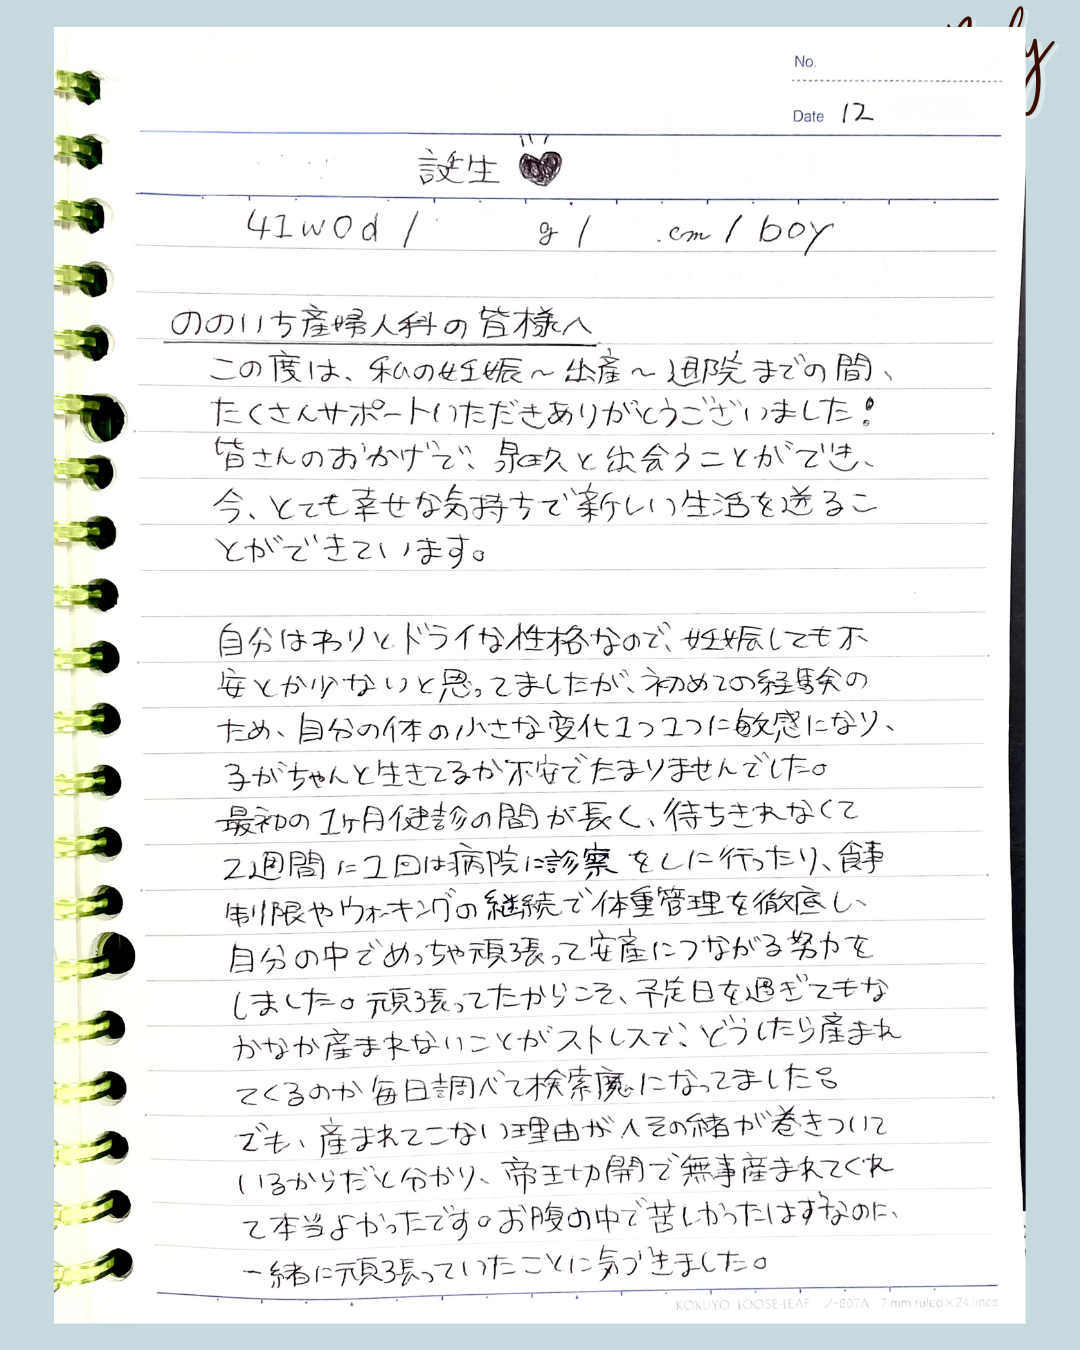 No.
Date 12
誕生
41w0d / g / .cm / boy
ののいち産婦人科の皆様へ
この度は、私の妊娠～出産～退院までの間、
たくさんサポートいただきありがとうございました!
皆さんのおかげで、と出会うことができ、
今、とても幸せな気持ちで新しい生活を送るこ
とができています。
自分はわりとドライな性格なので、妊娠しても不
安とか少ないと思ってましたが、初めての経験の
ため、自分の体の小さな変化1つ1つに敏感になり、
子がちゃんと生きてるか不安でたまりませんでした。
最初の1ヶ月健診の間が長く、待ちきれなくて
2週間に1回は病院に診察をしに行ったり、食事
制限やウォーキングの継続で体重管理を徹底し、
自分の中でめっちゃ頑張って安産につながる努力を
しました。頑張ってたからこそ、予定日を過ぎてもな
かなか産まれないことがストレスで、どうしたら産まれ
てくるのか毎日調べて検索魔になってました。
でも、産まれてこない理由がへその緒が巻きついて
いるからだと分かり、帝王切開で無事産まれてくれ
て本当よかったです。お腹の中で苦しかったはずなのに、
一緒に頑張っていたことに気づきました。
KOKUYO LOOSE-LEAF ノ-807A 7mm ruled×24 lines